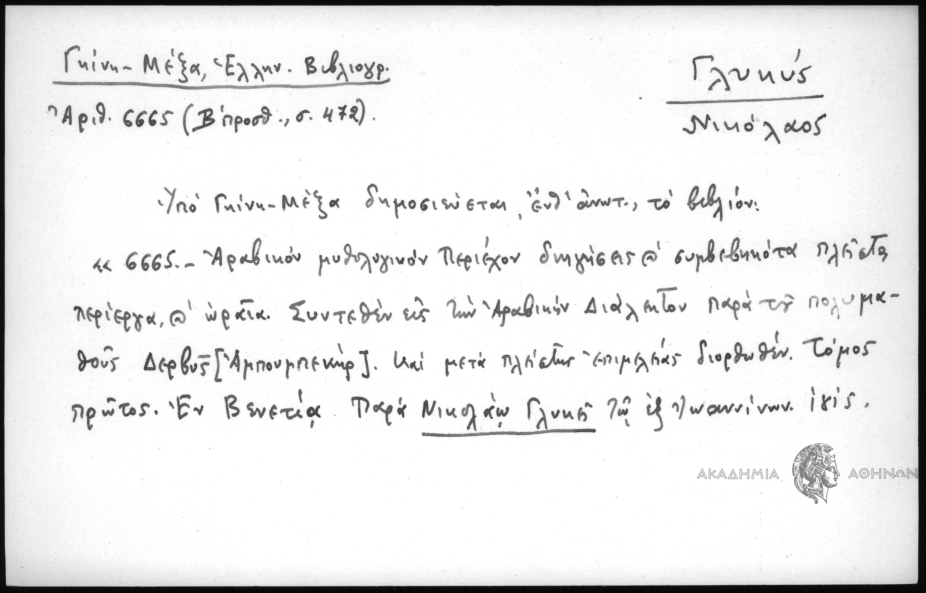 Γκίνη - Μέξα, Ἑλλην. Βιβλιογρ.
Ἀριθ. 6665 (Β' προσθ., σ. 472).
Γλυκύς
Νικόλαος
Ὑπό Γκίνη-Μέξα δημοσιεύεται, ἔνθ' ἀνωτ., τό βιβλίον:
« 6665.- Ἀραβικόν μυθολογικόν Περιέχον διηγήσεις ϗ συμβεβηκότα πλεῖστα
περίεργα, ϗ ὡραῖα. Συντεθέν εἰς τήν Ἀραβικήν Διάλεκτον παρά τοῦ πολυμα-
θοῦς Δερβύς [Ἀμπουμπεκήρ]. Καί μετά πλείστης ἐπιμελείας διορθωθέν. Τόμος
πρῶτος. Ἐν Βενετίᾳ. Παρά Νικολάῳ Γλυκεῖ Τῷ ἐξ Ἰωαννίνων.
ΑΚΑΔΗΜΙΑ ΑΘΗΝΩΝ